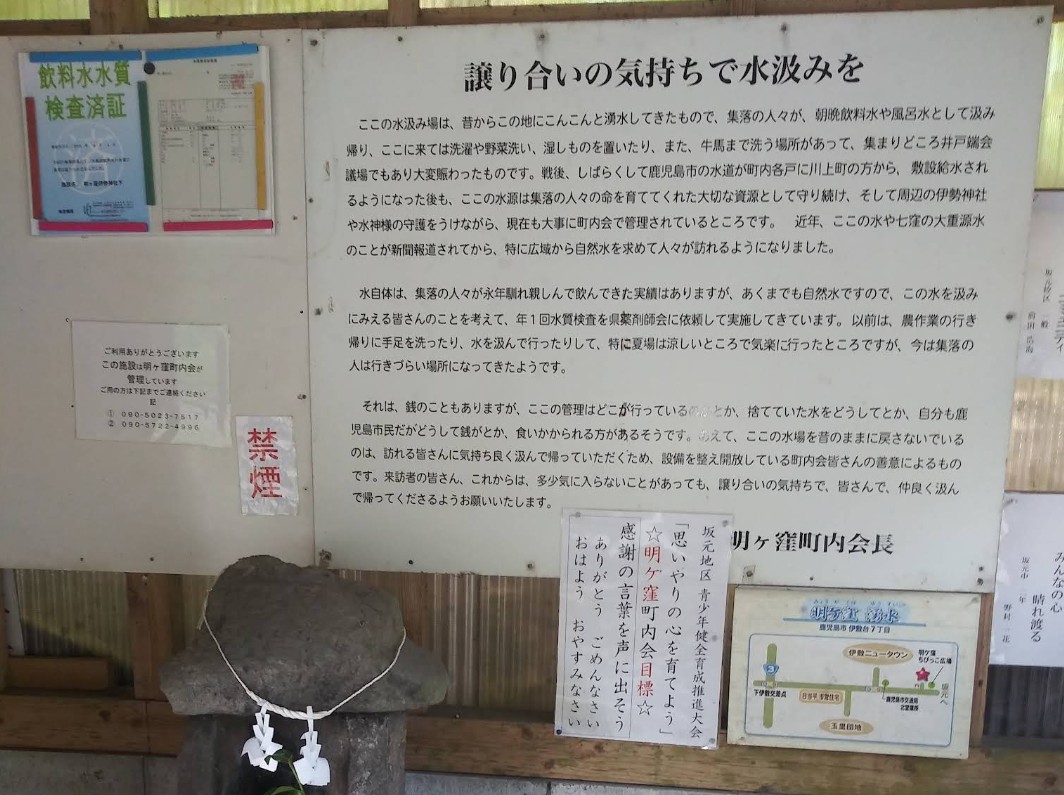 飲料水水質
検査済証
譲り合いの気持ちで水汲みを
ここの水汲み場は、昔からこの地にこんこんと湧水してきたもので、集落の人々が、朝晩飲料水や風呂水として汲み
帰り、ここに来ては洗濯や野菜洗い、湿しものを置いたり、また、牛馬まで洗う場所があって、集まりどころ井戸端会
議場でもあり大変賑わったものです。戦後、しばらくして鹿児島市の水道が町内各戸に川上町の方から、敷設給水され
るようになった後も、ここの水源は集落の人々の命を育ててくれた大切な資源として守り続け、そして周辺の伊勢神社
や水神様の守護をうけながら、現在も大事に町内会で管理されているところです。 近年、ここの水や七窪の大重源水
のことが新聞報道されてから、特に広域から自然水を求めて人々が訪れるようになりました。
水自体は、集落の人々が永年馴れ親しんで飲んできた実績はありますが、あくまでも自然水ですので、この水を汲み
にみえる皆さんのことを考えて、年1回水質検査を県薬剤師会に依頼して実施してきています。以前は、農作業の行き
帰りに手足を洗ったり、水を汲んで行ったりして、特に夏場は涼しいところで気楽に行ったところですが、今は集落の
人は行きづらい場所になってきたようです。
それは、銭のこともありますが、ここの管理はどこが行っているのかとか、捨てていた水をどうしてとか、自分も鹿
児島市民だがどうして銭がとか、食いかかられる方があるそうです。あえて、ここの水場を昔のままに戻さないでいる
のは、訪れる皆さんに気持ち良く汲んで帰っていただくため、設備を整え開放している町内会皆さんの善意によるもの
です。来訪者の皆さん、これからは、多少気に入らないことがあっても、譲り合いの気持ちで、皆さんで、仲良く汲ん
で帰ってくださるようお願いいたします。
明ヶ窪町内会長
ご利用ありがとうございます
この施設は明ヶ窪町内会が
管理しています
ご用の方は下記までご連絡ください
記
① 090-5023-7517
② 090-5722-4996
禁煙
坂元地区 青少年健全育成推進大会
「思いやりの心を育てよう」
☆明ケ窪町内会目標☆
感謝の言葉を声に出そう
ありがとう ごめんなさい
おはよう おやすみなさい
明ケ窪 湧水
鹿児島市 伊敷台7丁目
伊敷ニュータウン
明ケ窪
ちびっこ広場
3
下伊敷交差点
鹿児島市交通局
北営業所
坂元へ
玉里団地
みんなの心
晴れ渡る